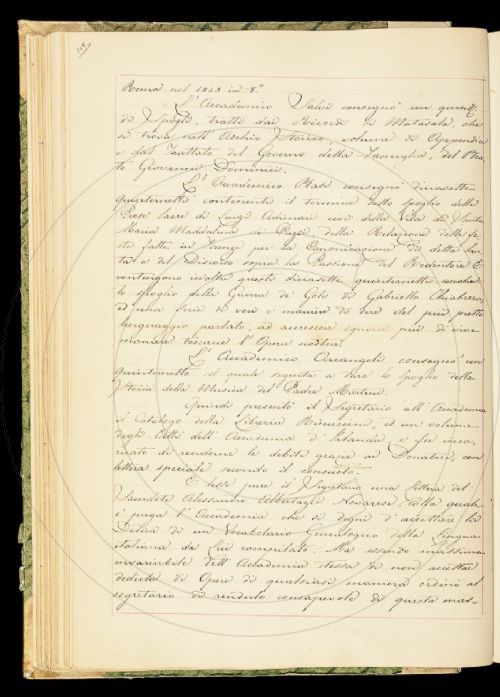 Roma nel 1843 in 8.°
L'Accademico Valsi consegnò un quint.
di Spoglj, tratti dai Ricordi di Matasala, che
si trova nell'Archio Storico, volume di Appendice
e dal Trattato del Governo della Famiglia, del Bea-
to Giovanni Dominici.
L'Accademico consegnò diciasette
quinternetti contenenti il termine dello spoglio delle
Prose sacre di Luigi cioè della Vita di Santa
Maria Maddalena de Pazzi, della Relazione delle fe-
ste fatte in Firenze per la Canonizzazione di detta San-
ta e del Discorso sopra la Passione del Redentore. E
contengono inoltre questi diciasette quinternetti anche
lo spoglio della Guerra de' Goti di Gabriello Chiabrera,
ed una serie di voci e maniere di dire del più pretto
linguaggio parlato, ad accrescere ognora più di vive
maniere toscane l'Opera nostra.
L'Accademico Arcangeli consegnò un
quinternetto, il quale seguita a dare lo spoglio della
Storia della Musica del Padre Martini.
Quindi presentò il Segretario all'Accademia
il Catalogo della Libreria Riniccini, ed un volume
degli Atti dell'Accademia d'Irlanda, e fu inca-
ricato di renderne le debite grazie ai Donatori, con
lettera speciale secondo il consueto.
E lesse pure il Segretario una lettera del
Sacerdote Alessandro Novarese, colla quale
si prega l'Accademia che si degni d'accettare la
Dedica di un Vocabolario Genealogico della Lingua
italiana da Lui compilato. Ma essendo massima
invariabile dell'Accademia stessa di non accettar
dediche di Opere di qualsiasi maniera ordinò al
segretario di renderlo consapevole di questa mas-